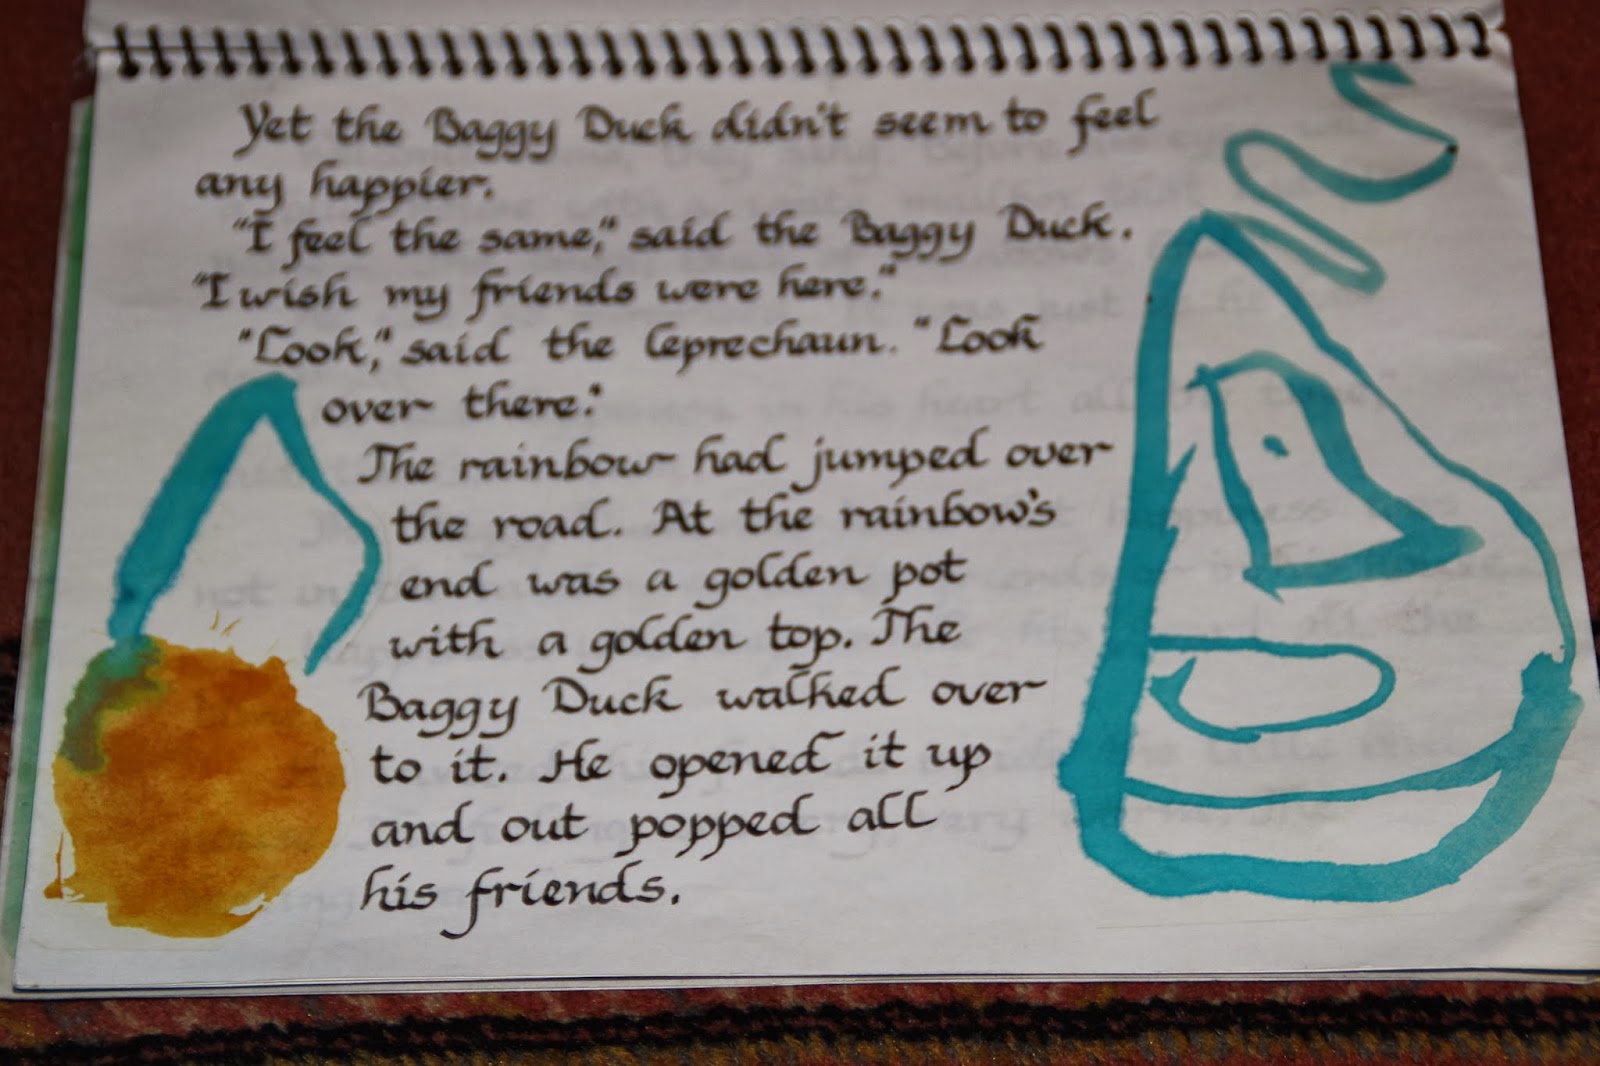 Yet the Baggy Duck didn't seem to feel
any happier.
"I feel the same," said the Baggy Duck.
"I wish my friends were here."
"Look," said the leprechaun. "Look
over there."
The rainbow had jumped over
the road. At the rainbow's
end was a golden pot
with a golden top. The
Baggy Duck walked over
to it. He opened it up
and out popped all
his friends.